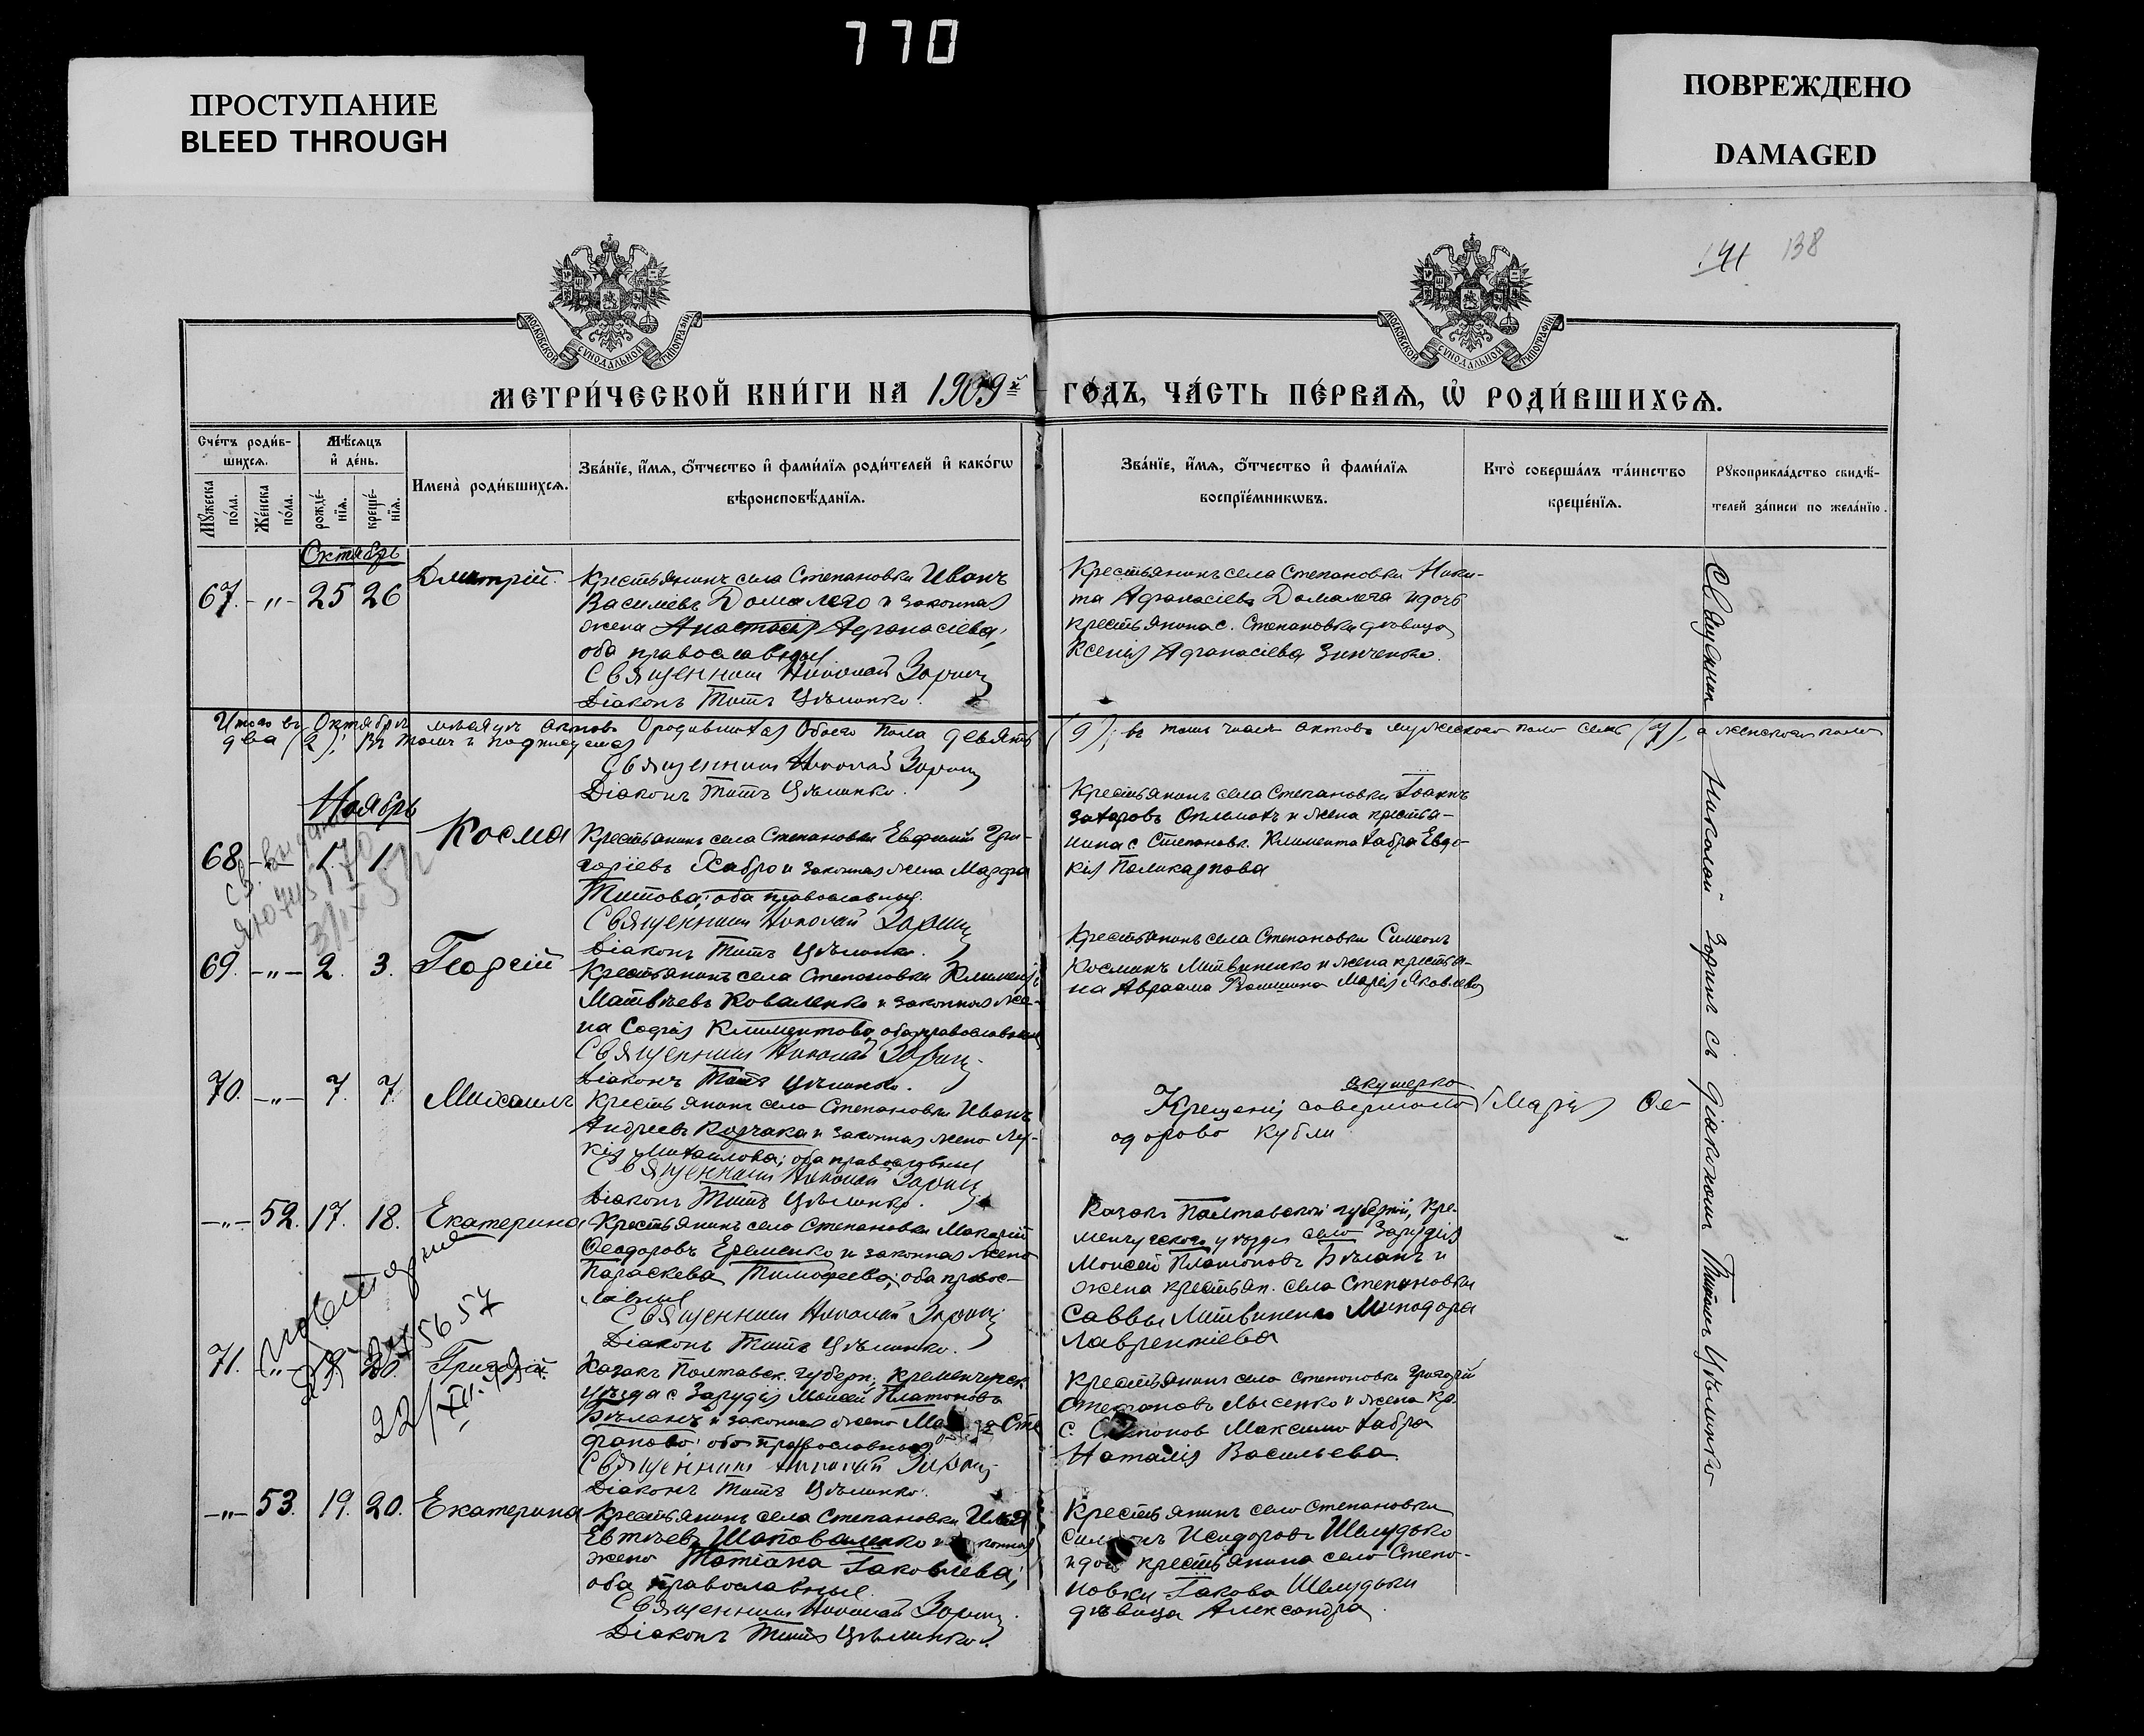 770
ПРОСТУПАНИЕ
BLEED THROUGH
ПОВРЕЖДЕНО
DAMAGED
141 138
МОСКОВСКОЙ СѴНОДАЛЬНОЙ ТИПОГРАФІИ
МОСКОВСКОЙ СѴНОДАЛЬНОЙ ТИПОГРАФІИ
МЕТРИ́ЧЕСКОЙ КНИ́ГИ НА 1909й ГО́ДЪ, ЧА́СТЬ ПЕ́РВАѦ, Ѡ҆ РОДИ́ВШИХСѦ.
Сче́тъ роди́в-
шихсѧ.
Мꙋ́жеска по́ла.
Же́нска по́ла.
Мѣ́сѧцъ
и҆ де́нь.
рожде́-
нїѧ.
креще́-
нїѧ.
Имена̀ роди́вшихсѧ.
Зва́нїе, и҆́мѧ, ѻ҆́тчество и҆ фами́лїѧ роди́телей и҆ како́гѡ
вѣроисповѣ́данїѧ.
Зва́нїе, и҆́мѧ, ѻ҆́тчество и҆ фами́лїѧ
воспрїе́мникѡвъ.
Кто̀ соверша́лъ та́инство
креще́нїѧ.
Рꙋкоприкла́дство свидѣ́-
телей за́писи по жела́нїю.
Октябрь
67. -"- 25 26 Дмитрій.
Крестьянинъ села Степановки Иванъ
Васильевъ Домалего и законная
жена Анастасія Афанасіева,
оба православные
Священникъ Николай Зоринъ
Діаконъ Титъ Цѣлинко.
Крестьянинъ села Степановки Ники-
та Афанасіевъ Домалега и дочь
крестьянина с. Степановки дѣвица
Ксенія Афанасіева Зинченко.
Итого въ Октябрѣ мѣсяцѣ актовъ О родившихся Обоего Пола девять (9); въ томъ числѣ актовъ мужескаго пола семь (7), а женскаго пола
два (2); въ томъ и подписуемся
Священникъ Николай Зоринъ
Діаконъ Титъ Цѣлинко.
Ноябрь
68. -"- 1. 1. Косма
Крестьянинъ села Степановки Евфимій Гри-
горіевъ Хабро и законная жена Марфа
Титова, оба православные.
Священникъ Николай Зоринъ
Діаконъ Титъ Цѣлинко.
Крестьянинъ села Степановки Іоаннъ
Захаровъ и жена крестья-
нина с. Степановк. Климента Хабра Евдо-
кія Поликарпова
69. -"- 2. 3. Георгій
Крестьянинъ села Степановки Климентъ
Матвѣевъ Коваленко и законная же-
на Софія Климентова, оба православные
Священникъ Николай Зоринъ
Діаконъ Титъ Цѣлинко.
Крестьянинъ села Степановки Симеонъ
Косминъ Литвиненко и жена крестья-
на Авраама Марія Яковлева
70. -"- 7. 7. Михаилъ
Крестьянинъ село Степановки Иванъ
Андреевъ Корчака и законная жена Лу-
кія Михаилова; оба православные
Священникъ Николай Зоринъ
Діаконъ Титъ Цѣлинко.
акушерко
Крещеніе совершала Марія Ѳе-
одорово Кубли
-"- 52. 17. 18. Екатерина
Крестьянинъ село Степановки Макарій
Ѳеодоровъ Еременко и законная жена
Параскева Тимофеева, оба правос-
лавные
Священникъ Николай Зоринъ
Діаконъ Титъ Цѣлинко.
Козакъ Полтавской губерніи, Кре-
менчугскаго уѣзда село Зарудія
Моисей Платоновъ Бѣланъ и
жена крестьян. села Степановки
Саввы Литвиненко Минодора
Лаврентіева
71. -"- 20. Григорій.
Козакъ Полтавск. губерн, Кременчугск
уѣзда с Зарудія Моисей Платоновъ
Бѣланъ и законная жена Сте
фаново, оба православные
Священникъ Николай Зоринъ
Діаконъ Титъ Цѣлинко.
Крестьянинъ село Степановки Григорій
Стефановъ Лысенко и жена кр.
с Максима Хабра
Наталія Васильева
22/XII
-"- 53. 19. 20. Екатерина
Крестьянинъ села Степановки Илья
Евтѣевъ Шаповаленко
жена Татіана Іаковлева,
оба православные.
Священникъ Николай Зоринъ.
Діаконъ Титъ Цѣлинко.
Крестьянинъ село Степановки
Исидоровъ Шелудько
крестьянина село Степа-
новки Іакова Шелудьки
дѣвица Александра.
Священник Николай Зоринъ съ діакономъ Титомъ Цѣлинко